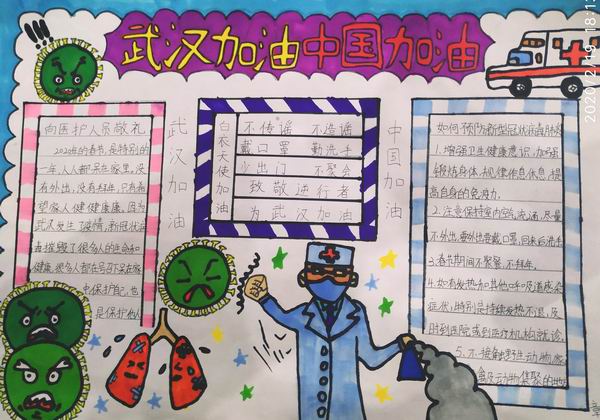 武汉加油中国加油
向医护人员敬礼
2020年的春节,是特别的
一年,人人都呆在家里,没
有外出,没有拜年,只有希
望家人健健康康。因为
武汉发生了疫情,新冠状病
毒摧毁了很多人的生命和
健康,很多人都在号召呆在家
也保护自己,也
是保护他人
武汉加油
白衣天使加油
不传谣 不造谣
戴口罩 勤洗手
少出门 不聚会
致敬逆行者
为武汉加油
中国加油
如何预防新型冠状病毒肺炎
1.增强卫生健康意识,加强
锻炼身体,规律作息休息,提
高自身的免疫力.
2.注意保持室内空气流通,尽量
不外出,要外出要戴口罩,回来后洗手
3.春节期间不聚餐,不拜年.
4.如有发热和其他呼吸道感染
症状,特别是持续发热不退,及
时到医院或到医疗机构就诊,
5.不接触野生动物
2020/2/19 18:13